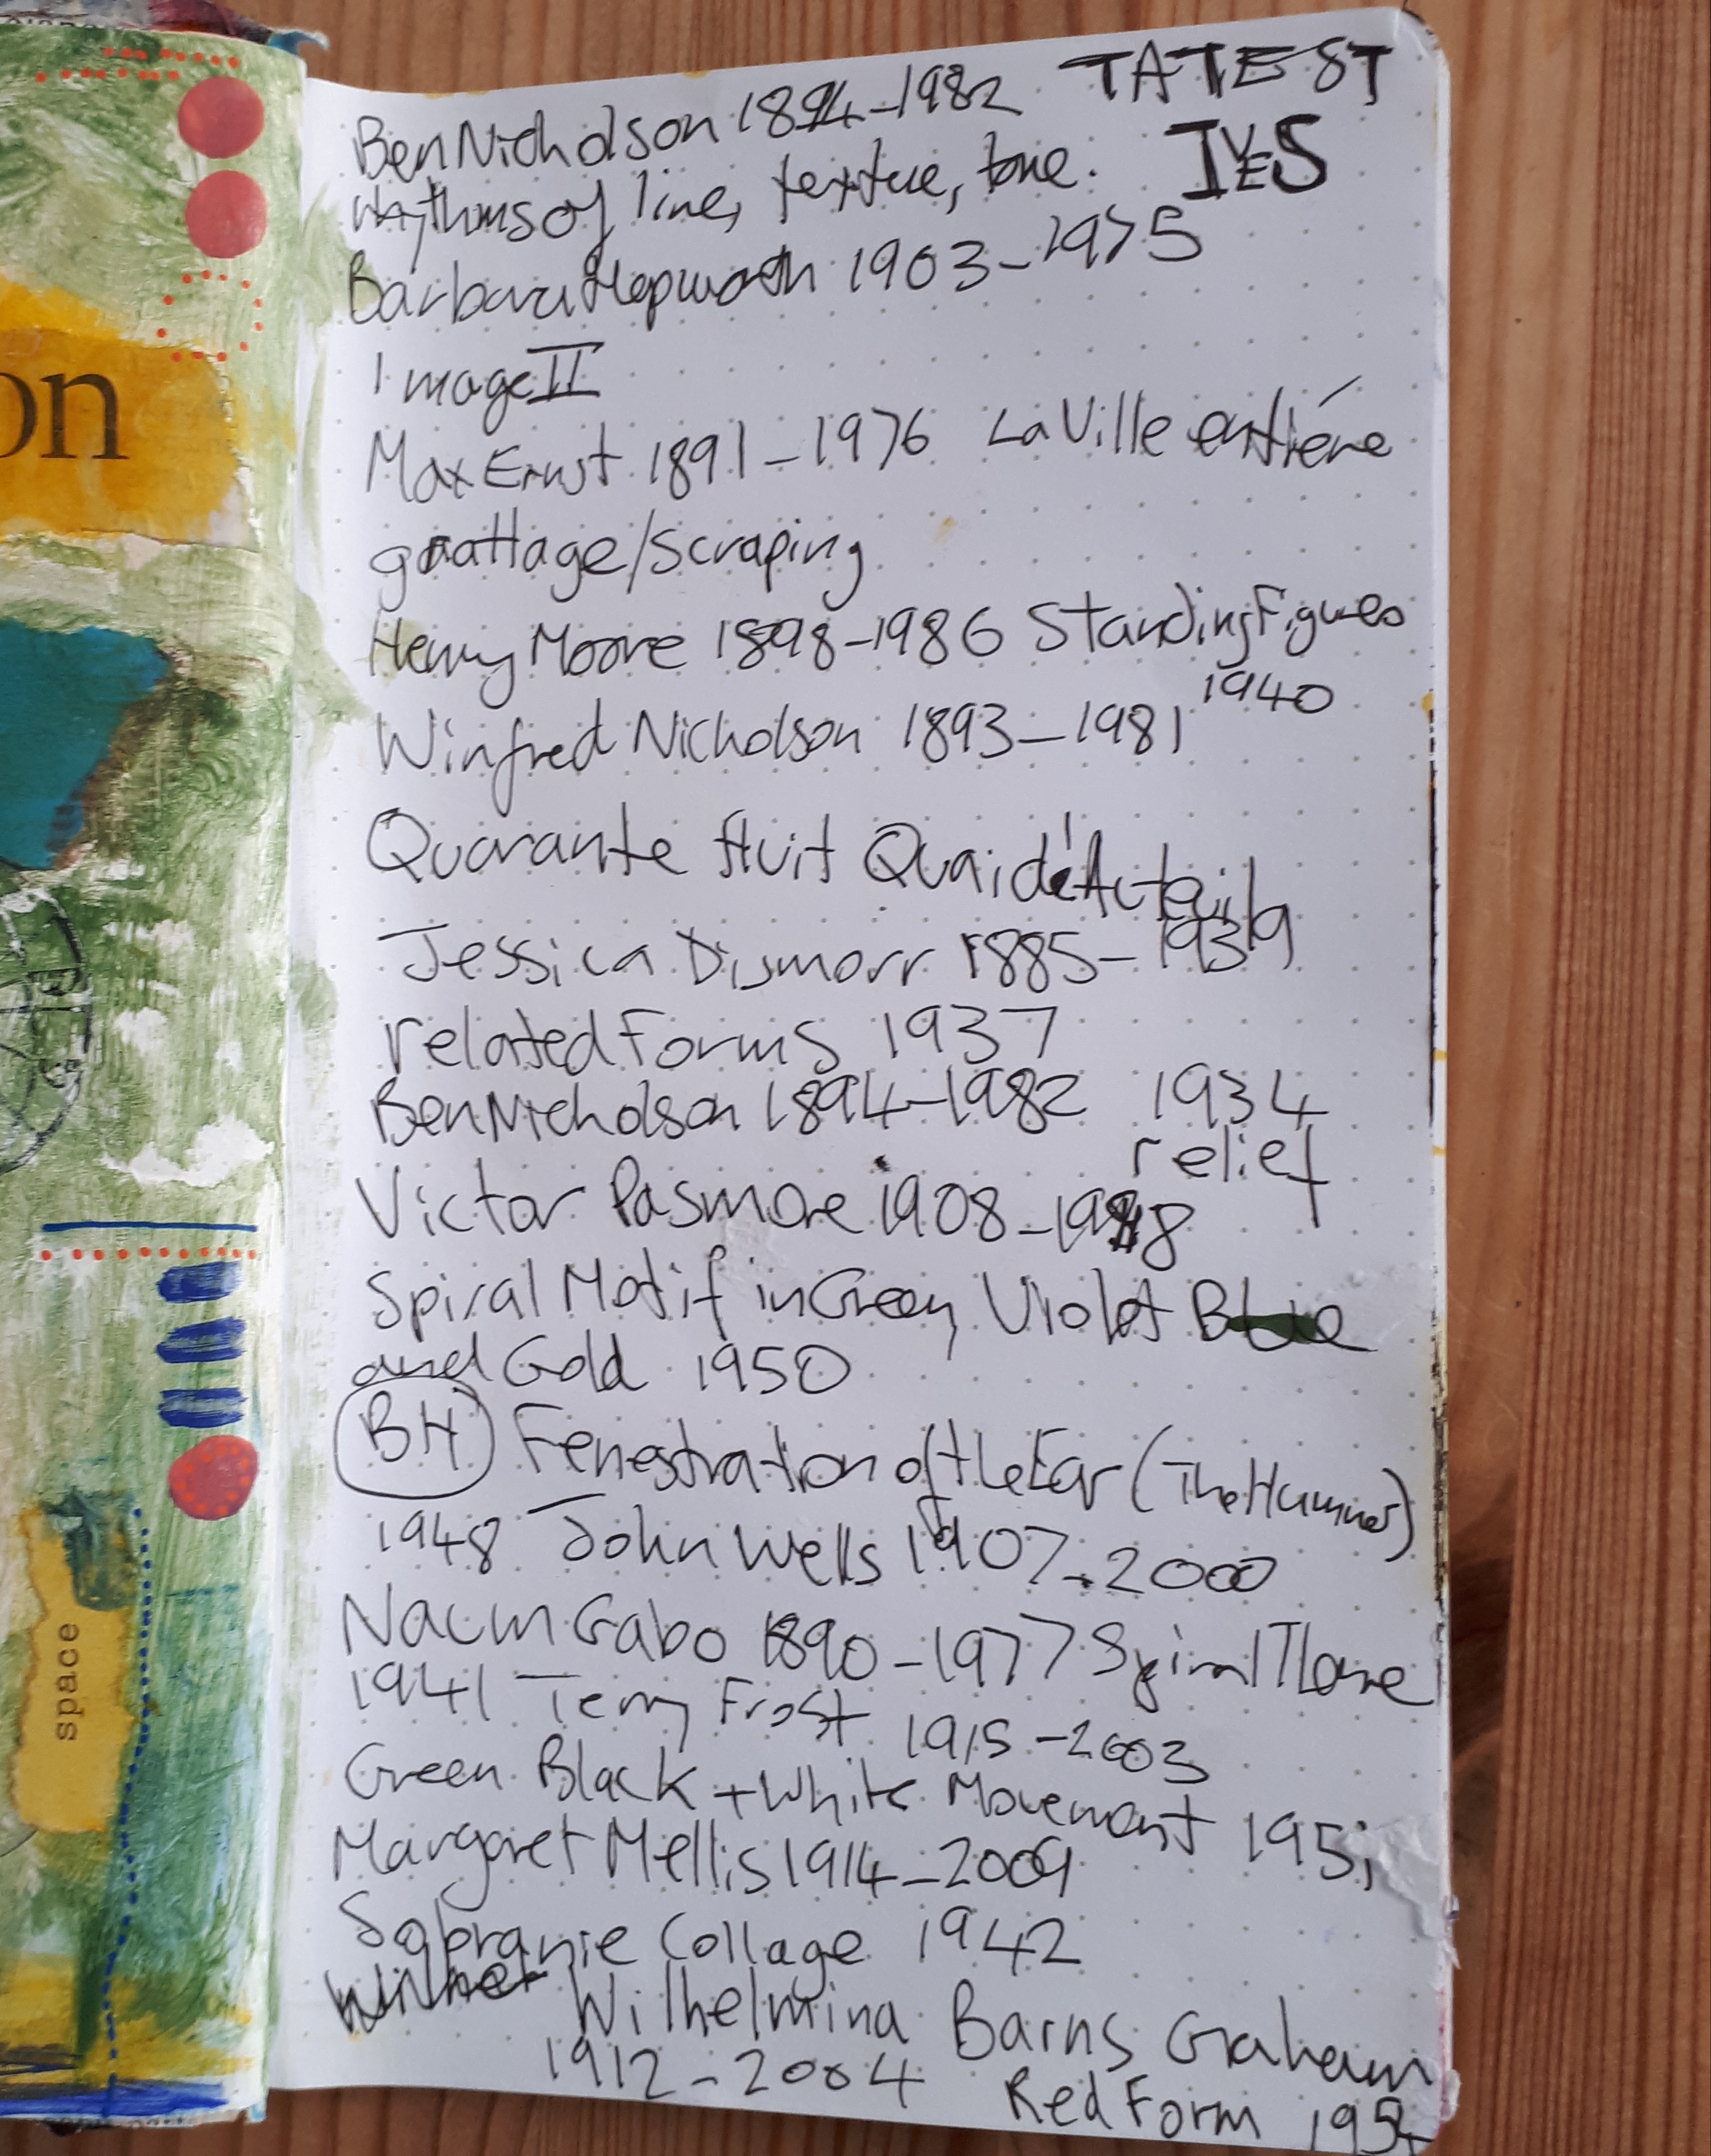 on
space
Ben Nicholson 1894-1982 TATE ST
IVES
rhythms of line, texture, tone.
Barbara Hepworth 1903-1975
Image II
Max Ernst 1891-1976 La Ville entiére
grattage/scraping
Henry Moore 1898-1986 Standing Figures
1940
Winfred Nicholson 1893-1981
Quarante Huit Quai d'Auteuil
Jessica Dismorr 1885-1939
related Forms 1937
Ben Nicholson 1894-1982 1934
relief
Victor Pasmore 1908-1998
Spiral Motif in Green, Violet Blue
and Gold 1950
BH Fenestration of the Ear (The Hammer)
1948 John Wells 1907-2000
Naum Gabo 1890-1977 Spiral Theme
1941 Terry Frost 1915-2003
Green Black + White Movement 1951
Margaret Mellis 1914-2009
Sobranie Collage 1942
Wilhelmina Barns Graham
1912-2004 Red Form 1954